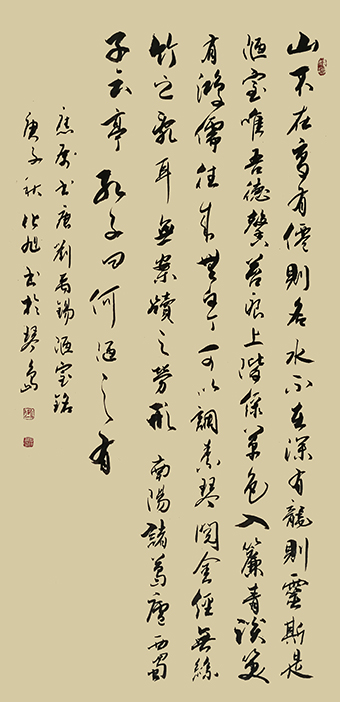 山不在高有僊則名水不在深有龍則靈斯是
陋室唯吾德馨苔痕上階綠草色入簾青談笑
有鴻儒往來無白丁可以調素琴閱金經無絲
竹之亂耳無案牘之勞形南陽諸葛廬西蜀
子云亭孔子曰何陋之有
應屬书唐劉禹錫陋室銘
庚子秋化旭书於琴島